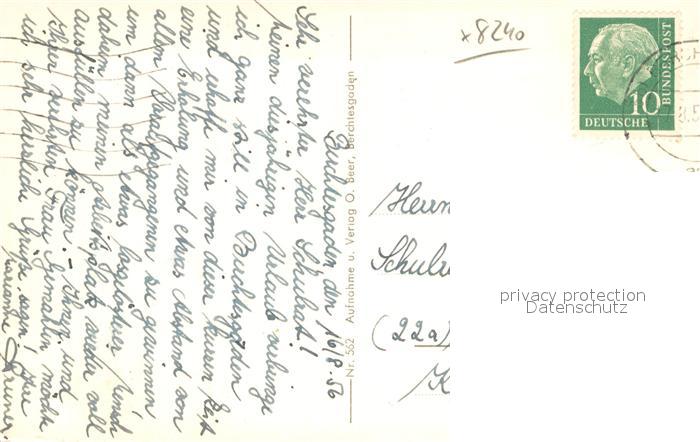 x 8240
10
DEUTSCHE
BUNDESPOST
Berchtesgaden den 16/8.56
Sehr verehrter Herr Schulrat!
Meinen diesjährigen Urlaub verbringe
ich ganz still in Berchtesgaden
und erhoffe mir von dieser kurzen Zeit
eine Erholung und etwas Abstand von
allem Vorausgegangenen zu gewinnen
um dann als etwas Mensch
daheim meinen Arbeitsplatz wieder voll
ausfüllen zu können. - Ihnen und
Ihrer verehrten Frau Gemahlin möchte
ich sehr herzliche Grüße sagen! Ihre
Marianne
Nr. 562 Aufnahme u. Verlag O. Beer, Berchtesgaden
Herrn
Schulr
(22a)
K
privacy protection
Datenschutz